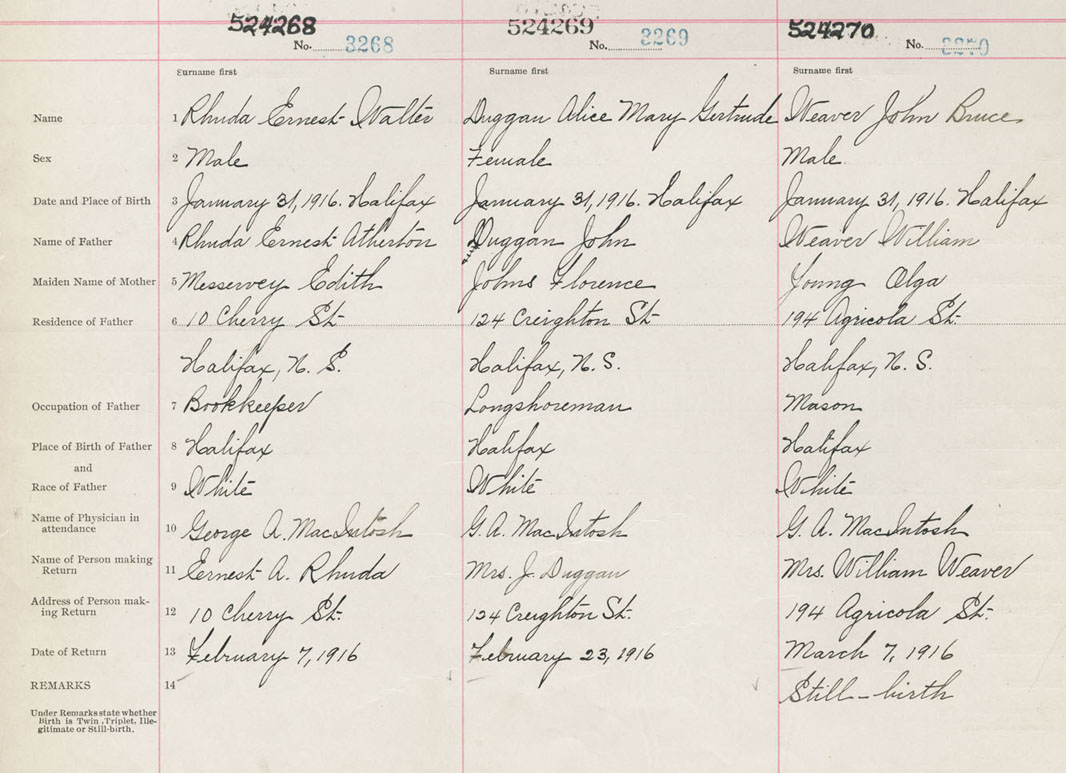 524268 524269 524270
No. 3268 No. 3269 No. 3270
Surname first Surname first Surname first
Name 1 Rhuda Ernest Walter Duggan Alice Mary Gertrude Weaver John Bruce
Sex 2 Male Female Male
Date and Place of Birth 3 January 31, 1916. Halifax January 31, 1916. Halifax January 31, 1916. Halifax
Name of Father 4 Rhuda Ernest Atherton Duggan John Weaver William
Maiden Name of Mother 5 Messervey Edith Johns Florence Young Olga
Residence of Father 6 10 Cherry St. 124 Creighton St. 194 Agricola St.
Halifax, N. S. Halifax, N. S. Halifax, N. S.
Occupation of Father 7 Bookkeeper Longshoreman Mason
Place of Birth of Father 8 Halifax Halifax Halifax
and
Race of Father 9 White White White
Name of Physician in
attendance 10 George A. MacIntosh G. A. MacIntosh G. A. MacIntosh
Name of Person making
Return 11 Ernest A. Rhuda Mrs. J. Duggan Mrs. William Weaver
Address of Person mak-
ing Return 12 10 Cherry St. 124 Creighton St. 194 Agricola St.
Date of Return 13 February 7, 1916 February 23, 1916 March 7, 1916
REMARKS 14 Still-birth
Under Remarks state whether
Birth is Twin, Triplet, Ille-
gitimate or Still-birth.